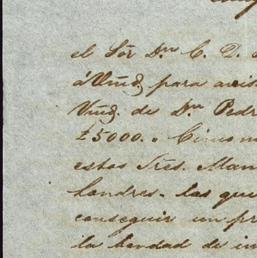 el Sór Dn C. D.
á Vmd. para avis
Vmd. de Dn Pedr
£5000.. Cinco m
estos Sres. Man
Londres. las que
conseguir un pr
la bondad de in